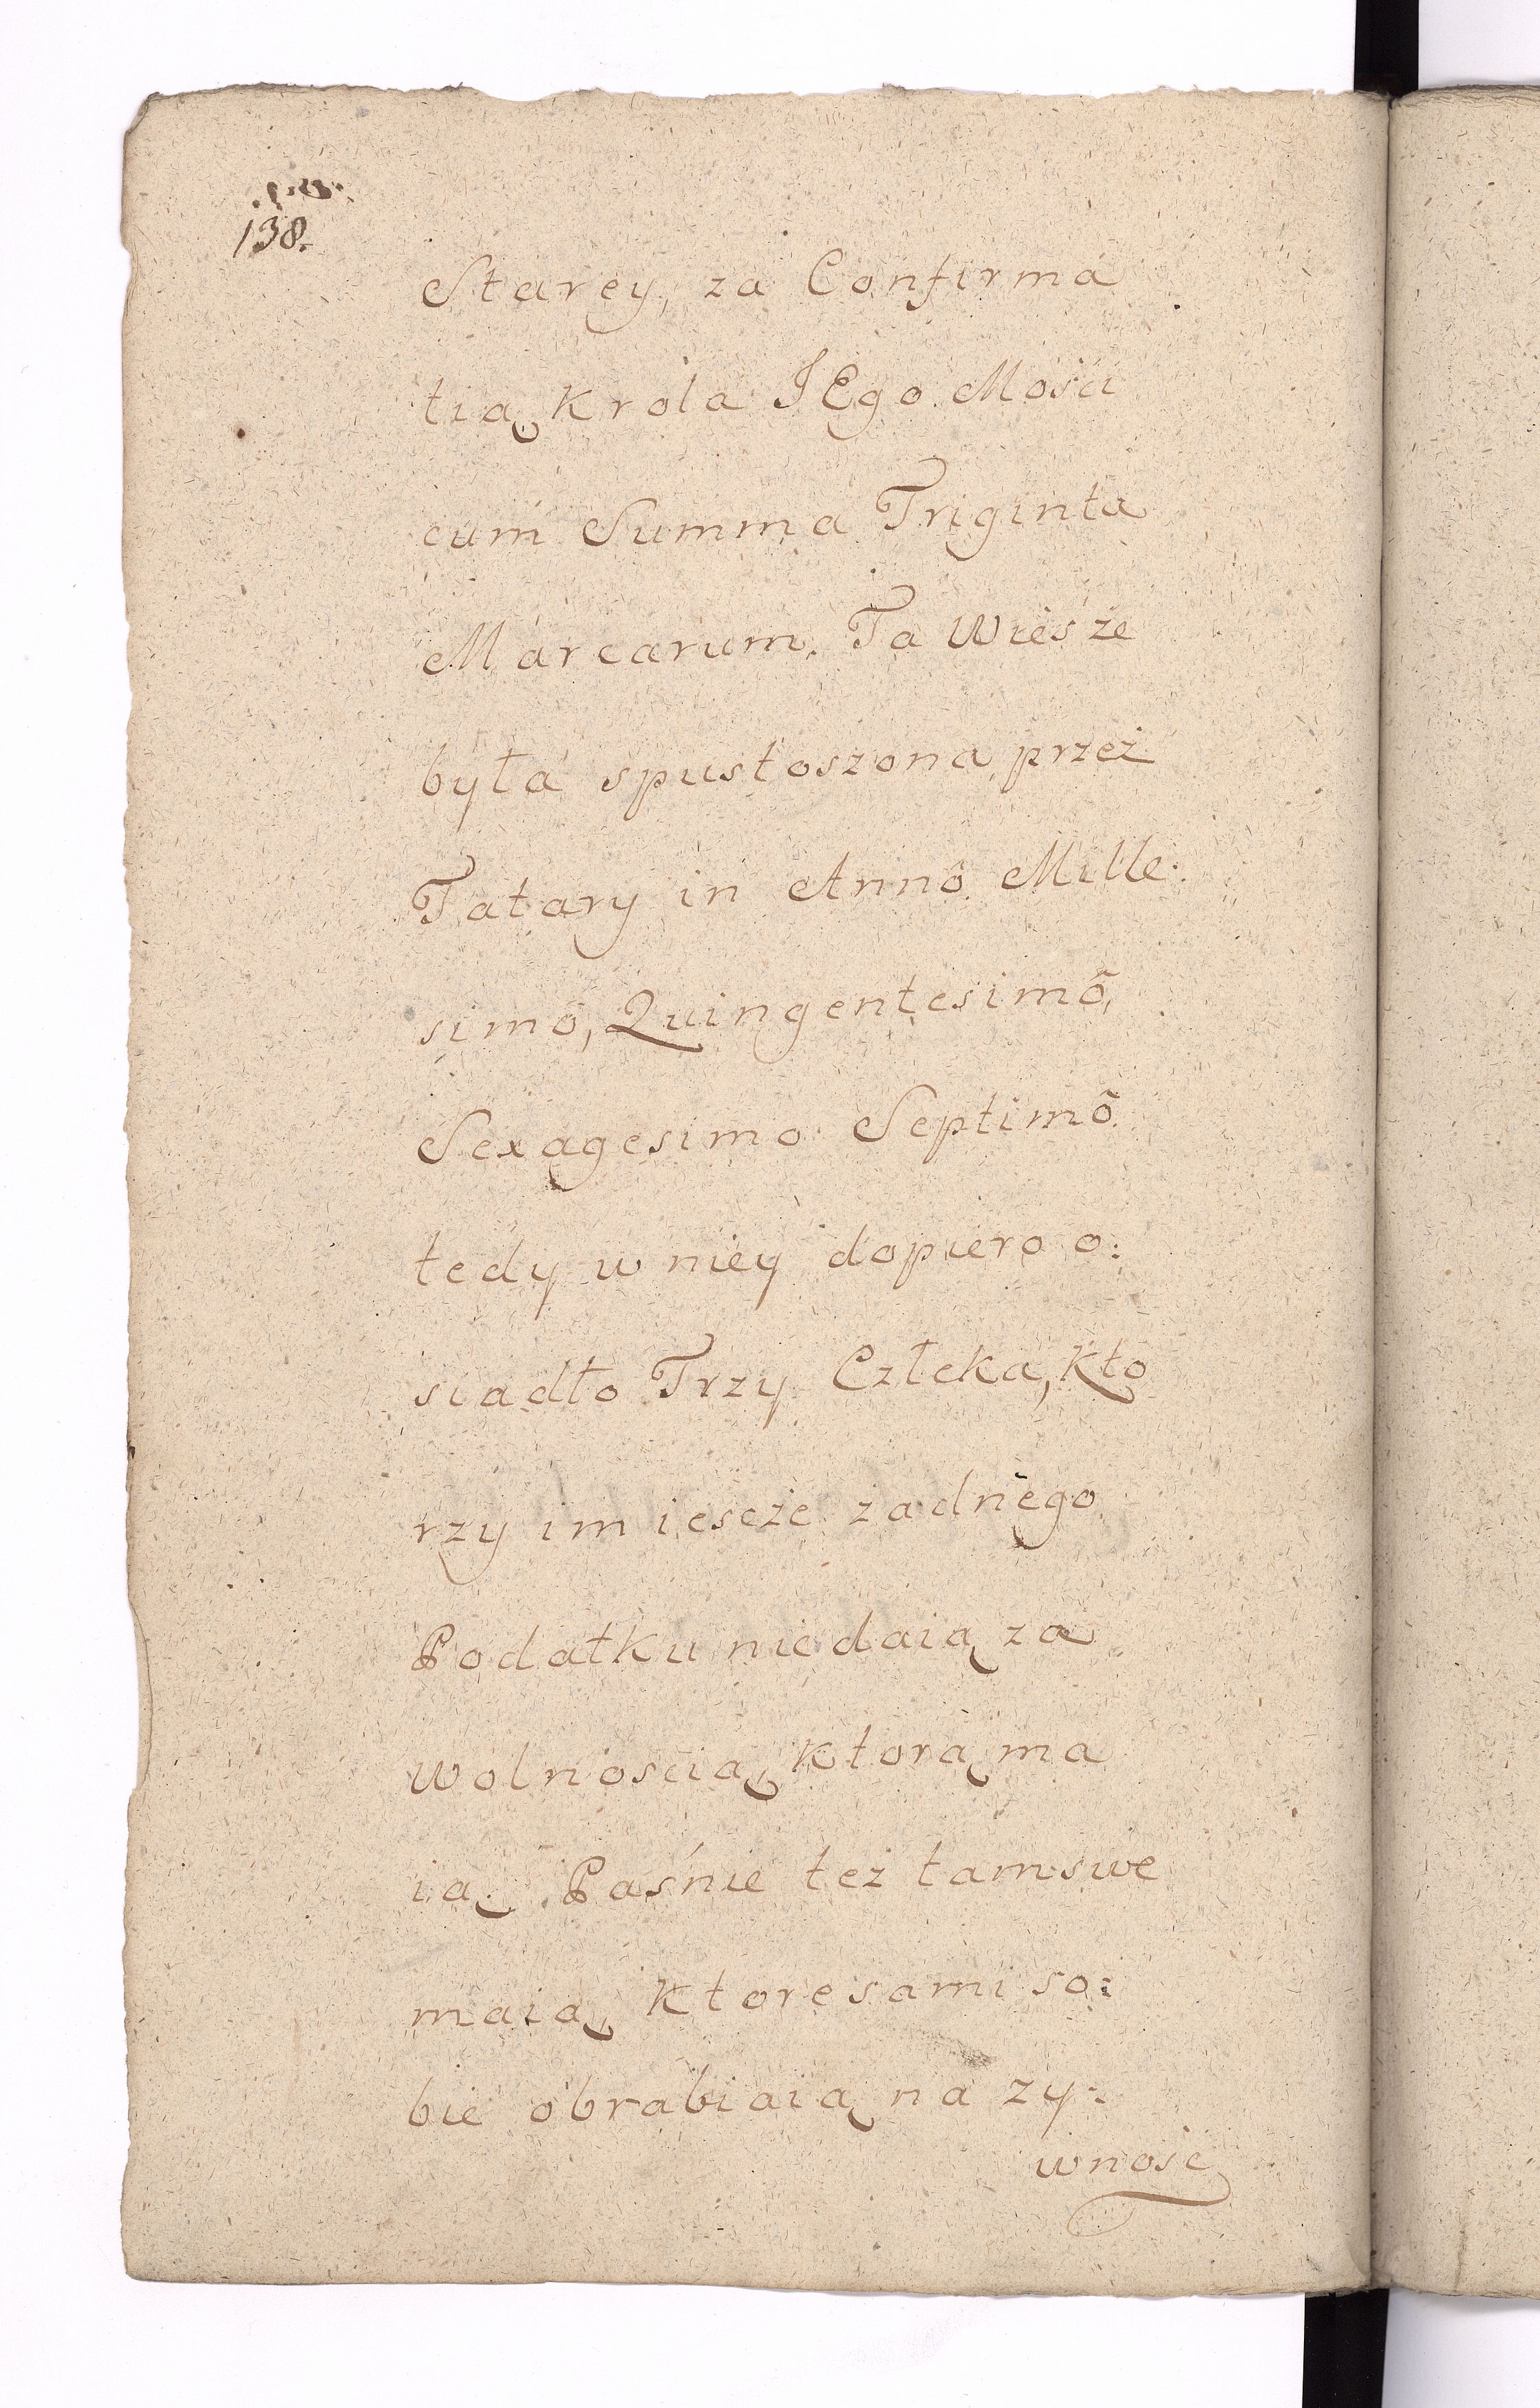 138.
Starey, za Confirma
tią Krola JEgo Mości
cum Summa Triginta
Marcarum. Ta Wies że
była spustoszona przeż
Tatary in Annô Mille:
simô, Quingentesimô,
Sexagesimo Septimô
tedy w niey dopiero o:
siadło Trzy Człeka, Kto
rzy im iescże żadnego
Podatku nie daią za
wolnoscią, Ktorą ma
ią. Paśnie też tam swe
maią, Ktore sami so:
bie obrabiaią na zy:
wnosc